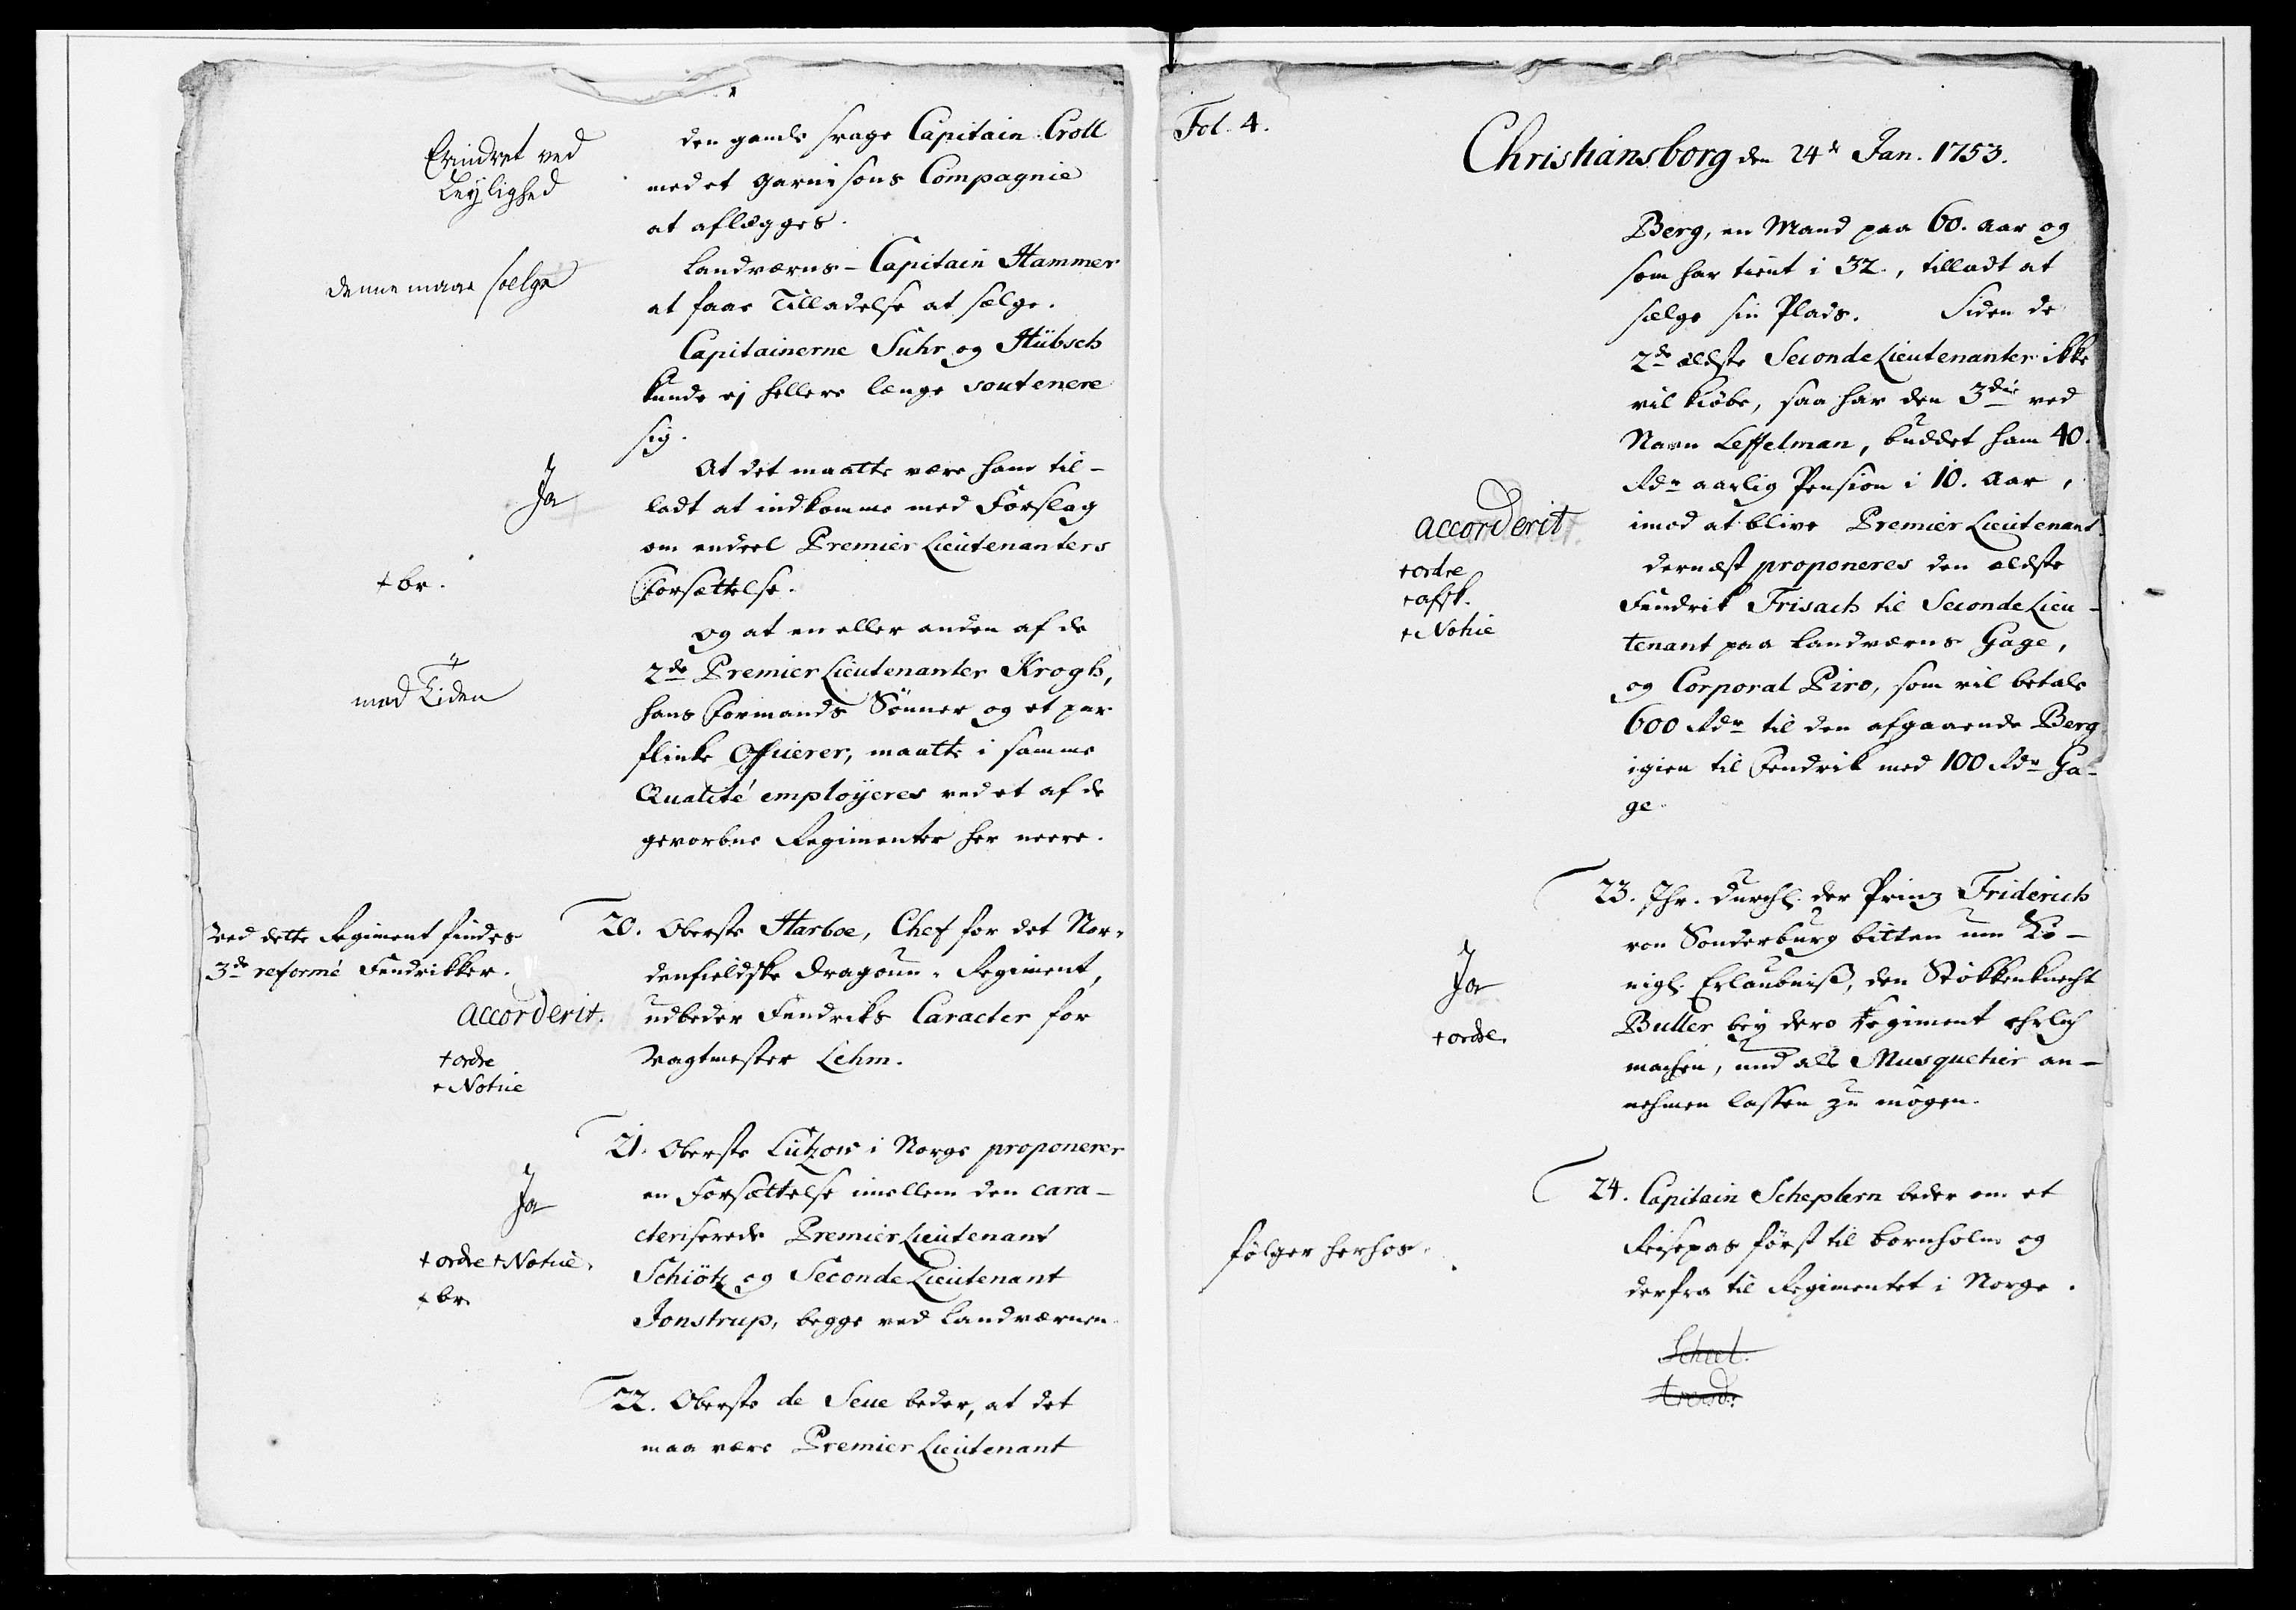 Erindret ved
Leylighed
den gamle svage Capitain Croll
med et Garnisons Compagnie
at aflægges.
denne maae sælge
Landværns-Capitain Hammer
at faae Tilladelse at sælge.
Capitainerne Suhr og Hübsch
kunde ej hellere længe soutenere
sig.
Ja
At det maatte være ham til-
ladt at indkomme med Forslag
om endeel Premier Lieutenanters
+ br.
Forsættelse.
og at en eller anden af de
med Tiden
2de Premier Lieutenanter Krogh,
hans Formands Sönner og et par
flinke Officerer, maatte i samme
Qualité employeres ved et af de
gevorbne Regimenter her neere.
Ved dette Regiment findes
3de reformé Fendrikker.
accorderit.
+ ordre
+ Notice
20. Oberste Harboe, Chef for det Nor-
denfieldske Dragoun-Regiment,
udbeder Fendriks Caracter for
Vagtmester Lehm.
Ja
+ ordre + Notice.
+ br.
21. Oberste Lützow i Norge proponerer
en Forsættelse imellem den cara-
cteriserede Premier Lieutenant
Schiötz og Seconde Lieutenant
Jonstrup, begge ved Landværnen.
22. Oberste de Seue beder, at det
maa være Premier Lieutenant
Fol. 4.
Christiansborg den 24de Jan. 1753.
Berg, en Mand paa 60. Aar og
som har tient i 32., tilladt at
sælge sin Plads. Siden de
2de ældste Seconde Lieutenanter ikke
vil kiöbe, saa har den 3die ved
Navn Leffelman, buddet ham 40.
Rdr aarlig Pension i 10. Aar,
accorderit.
+ ordre
+ affk.
+ Notice
imod at blive Premier Lieutenant.
dernæst proponeres den ældste
Fendrik Frisach til Seconde Lieu-
tenant paa Landværns Gage,
og Corporal Piro, som vil betale
600 Rdr til den afgaaende Berg
igien til Fendrik med 100 Rdr Ga-
ge.
Ja
+ ordre.
23. Ihr. Durchl. der Prinz Friderich
von Sonderburg bitten um Kö-
nigl. Erlaubniß, den Stökkenknecht
Buller bey dero Regiment ehrlich
machen, und als Musquetier an-
nehmen lassen zu mögen.
fölger herhos.
24. Capitain Scheplern beder om et
Reisepas först til Bornholm og
derfra til Regimentet i Norge.